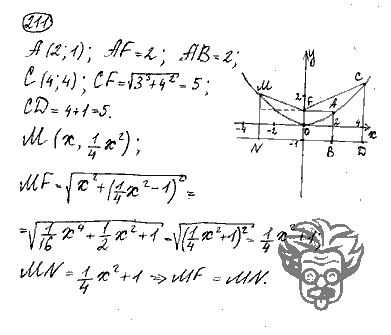 211
A(2;1); AF=2; AB=2;
C(4;4); CF=√3²+4² = 5;
CD=4+1=5.
M(x, 1/4 x²);
MF=√x²+(1/4 x²-1)² =
=√1/16 x⁴+1/2 x²+1 = √(1/4 x²+1)² = 1/4 x²+1;
MN=1/4 x²+1 ⇒ MF=MN.
y
M
C
2
F
A
-4
-2
0
2
4
x
N
-1
B
D